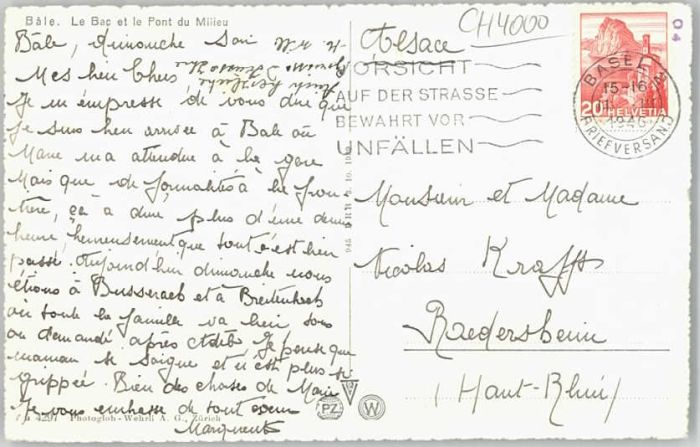 Bâle. Le Bac et le Pont du Milieu
CH4000
Bâle, dimanche soir
Alsace
Mes bien Chers
Je m'empresse de vous dire que
je suis bien arrivée à Bâle où
Marie m'a attendue à la gare
Mais que de formalités à la fron
tière, ça a duré plus d'une demi
heure, heureusement que tout s'est bien
passé. Aujourd'hui dimanche nous
étions à Busserach et à Breitenbach
où toute la famille va bien, tous
on demandé après
Je pense que
maman se soigne et n'est plus si
grippée. Bien des choses de Marie
Je vous embrasse de tout coeur
Marguerite
VORSICHT
AUF DER STRASSE
BEWAHRT VOR
UNFÄLLEN
BASEL
15-16
1946
(BRIEFVERSAND)
20 HELVETIA
04
Monsieur et Madame
Nicolas Krafft
Raedersheim
(Haut-Rhin)
PZ
W
4291 Photoglob-Wehrli A. G., Zürich